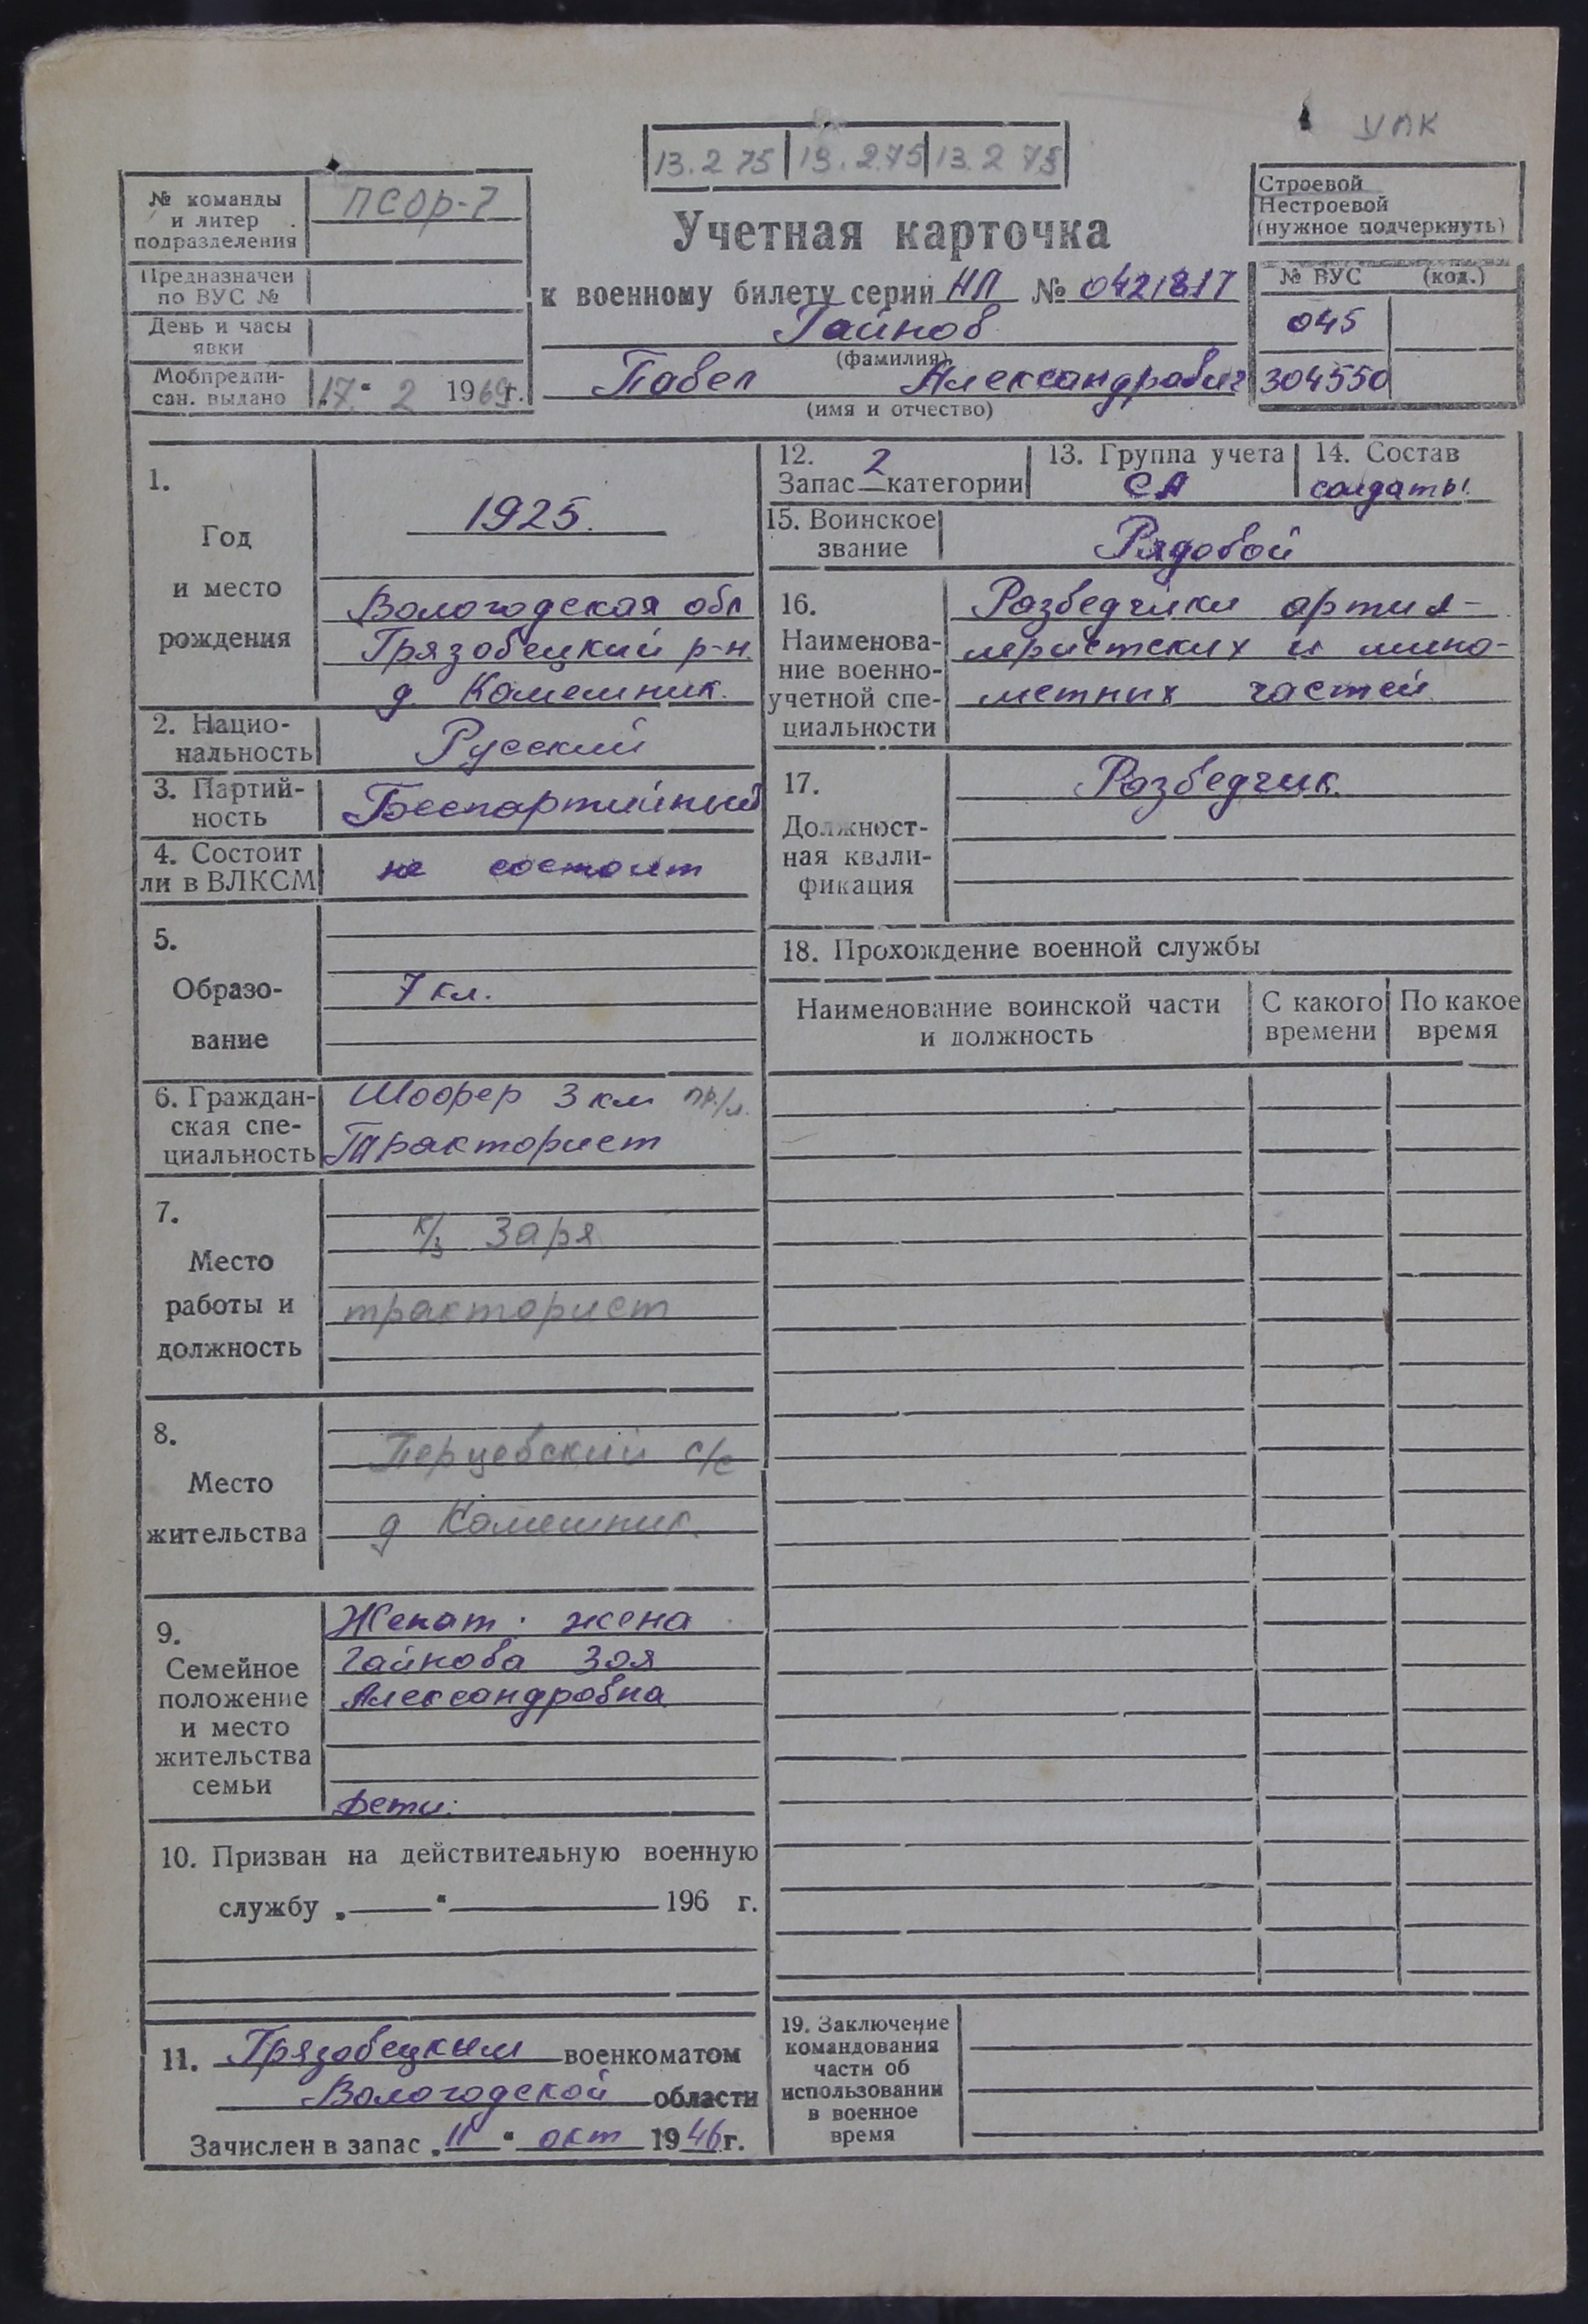 УПК
13.2 75 13.2.75 13.2 75
№ команды и литер подразделения ПСОР-7
Предназначен по ВУС №
День и часы явки
Мобпредписан. выдано „17“ 2 1969г.
Учетная карточка
к военному билету серии НП № 0421817
Гайнов
(фамилия)
Павел Александрович
(имя и отчество)
Строевой
Нестроевой
(нужное подчеркнуть)
№ ВУС (код.)
045
304550
1.
Год
и место
рождения
1925.
Вологодская обл
Грязовецкий р-н
д. Камешник.
2. Нацио-
нальность
Русский
3. Партий-
ность
Беспартийный
4. Состоит
ли в ВЛКСМ
не состоит
5.
Образо-
вание
7 кл.
6. Граждан-
ская спе-
циальность
Шофер 3 кл
Тракторист
7.
Место
работы и
должность
к/з Заря
тракторист
8.
Место
жительства
Перцевский с/с
д Камешник.
9.
Семейное
положение
и место
жительства
семьи
Женат. жена
Гайнова Зоя
Александровна
Дети:
10. Призван на действительную военную
службу „ “ 196 г.
11. Грязовецким военкоматом
Вологодской области
Зачислен в запас „11“ окт 1946г.
12. 2
Запас категории
13. Группа учета
СА
14. Состав
солдаты
15. Воинское
звание
Рядовой
16.
Наименова-
ние военно-
учетной спе-
циальности
Разведчики артил-
леристских и мино-
метных частей
17.
Должност-
ная квали-
фикация
Разведчик.
18. Прохождение военной службы
Наименование воинской части
и должность
С какого
времени
По какое
время
19. Заключение
командования
части об
использовании
в военное
время